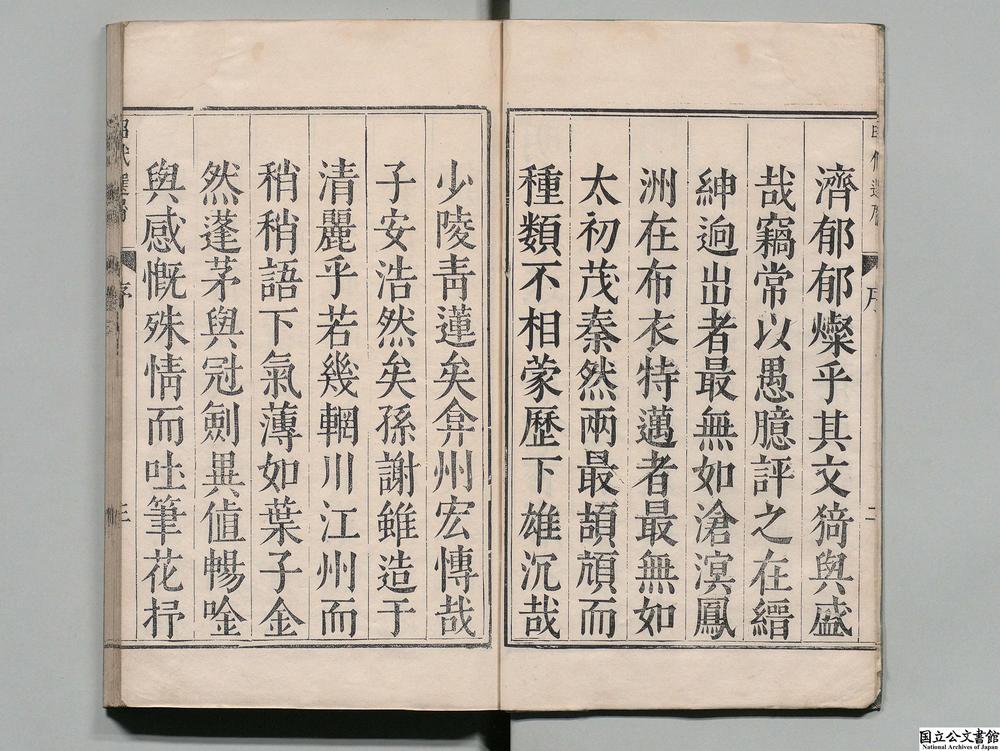 濟郁郁燦乎其文猗與盛
哉竊常以愚臆評之在縉
紳逈出者最無如滄溟鳳
洲在布衣特邁者最無如
太初茂秦然兩最頡頏而
種類不相蒙歷下雄沉哉
少陵青蓮矣弇州宏博哉
子安浩然矣孫謝雖造于
清麗乎若幾輞川江州而
稍稍語下氣薄如葉子金
然蓬茅與冠劍異值暢唫
與感慨殊情而吐筆花抒
序
二
昭代選屑
序
三
国立公文書館
National Archives of Japan